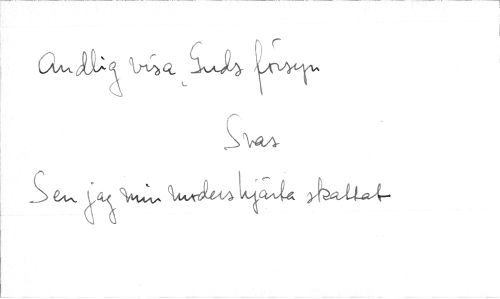 Andlig visa, Guds försyn
Svas
Sen jag min modershjärta skattat